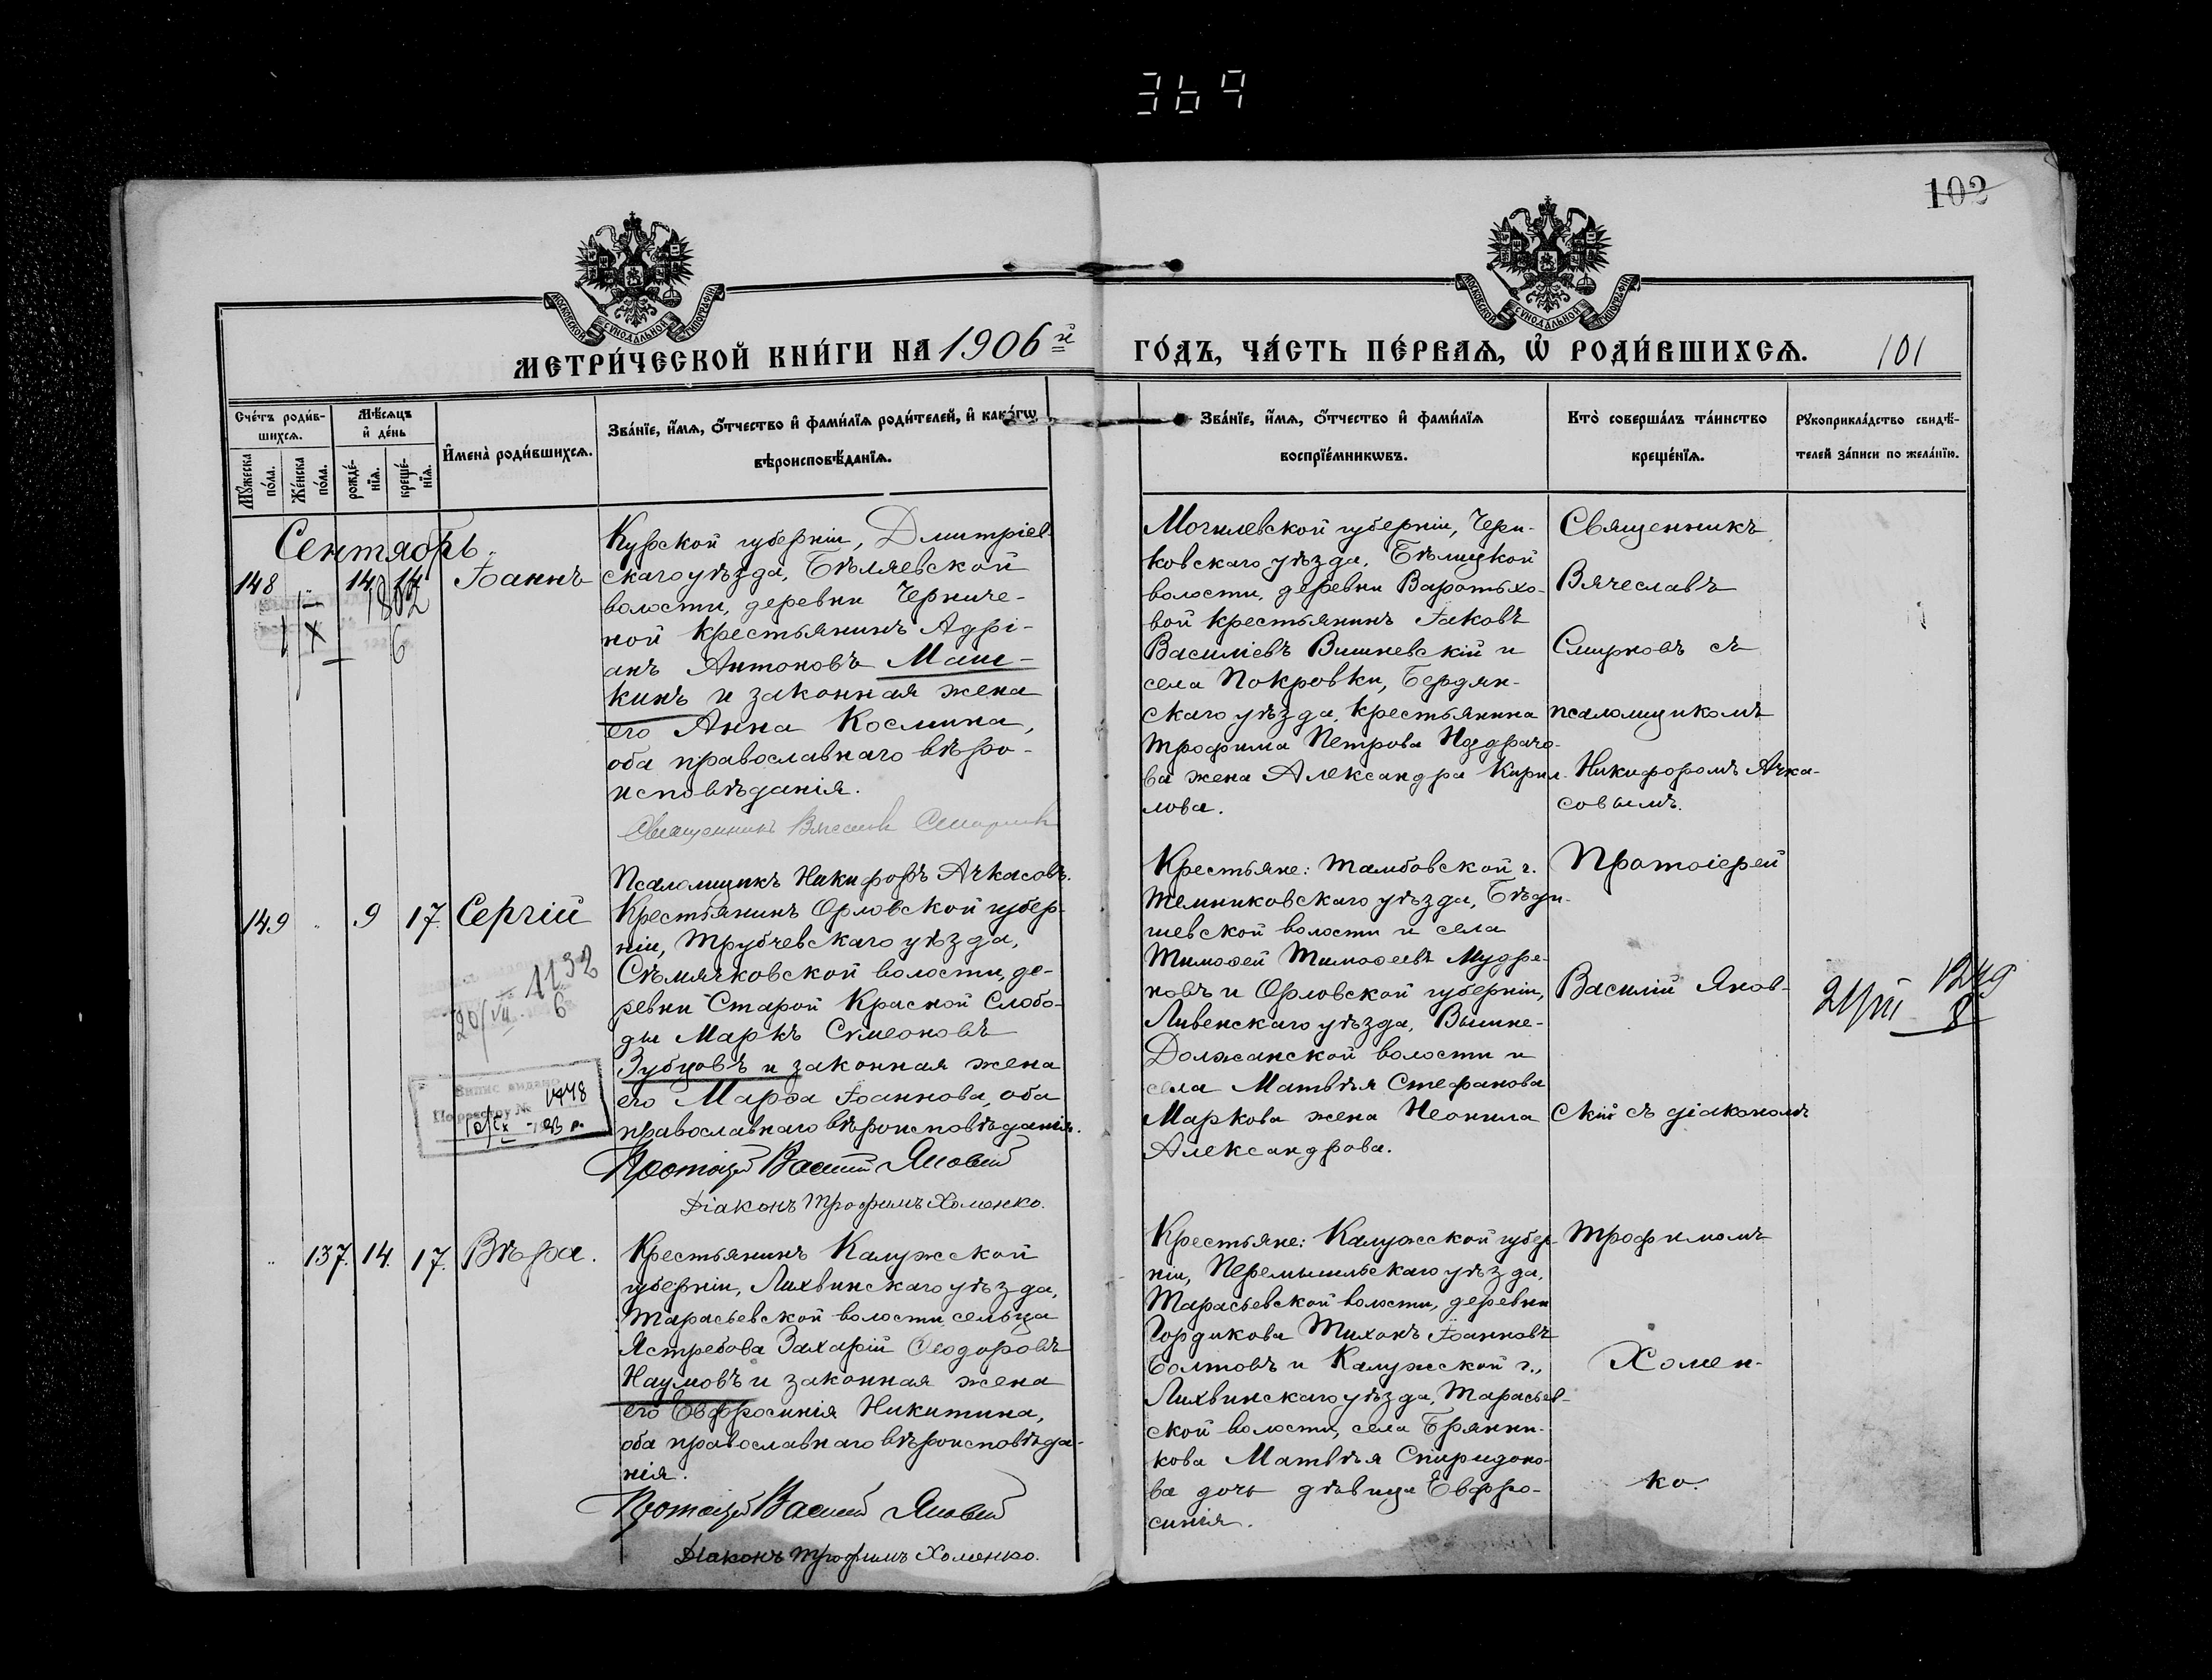 369
102
МОСКОВСКОЙ СѴНОДАЛЬНОЙ ТИПОГРАФІИ
МОСКОВСКОЙ СѴНОДАЛЬНОЙ ТИПОГРАФІИ
МЕТРИ́ЧЕСКОЙ КНИ́ГИ НА 1906й
ГО́ДЪ, ЧА́СТЬ ПЕ́РВАѦ, Ѡ҆ РОДИ́ВШИХСѦ.
101
Сче́тъ роди́в-
шихсѧ.
Мꙋ́жеска по́ла.
Же́нска по́ла.
Мѣ́сѧцъ
и҆ де́нь
рожде́-нїѧ.
креще́-нїѧ.
И҆мена̀ роди́вшихсѧ.
Зва́нїе, и҆́мѧ, ѻ҆́тчество и҆ фами́лїѧ роди́телей, и҆ како́гѡ
вѣроисповѣ́данїѧ.
Зва́нїе, и҆́мѧ, ѻ҆́тчество и҆ фами́лїѧ
воспрїе́мникѡвъ.
Кто̀ соверша́лъ та́инство
креще́нїѧ.
Рꙋкоприкла́дство свидѣ́-
телей за́писи по жела́нїю.
Сентябрь.
148 " 14 14 Іоаннъ
Курской губерніи, Дмитріев-
скаго уѣзда, Бѣляевской
волости, деревни Черниче-
ной крестьянинъ Адрі-
анъ Антоновъ Маш-
кинъ и законная жена
его Анна Космина,
оба православнаго вѣро-
исповѣданія.
Священникъ Вячеславъ Смирновъ
Псаломщикъ Никифоръ Ачкасовъ.
Могилевской губерніи, Чери-
ковскаго уѣзда, Бѣлицкой
волости, деревни Воротьхо-
вой крестьянинъ Іаковъ
Василіевъ Вишневскій и
села Покровки, Бердян-
скаго уѣзда, крестьянина
Трофима Петрова Ноздрачо-
ва жена Александра Кирил-
лова.
Священникъ
Вячеславъ
Смирновъ съ
псаломщикомъ
Никифоромъ Ачка-
совымъ.
149 " 9 17. Сергій
Крестьянинъ Орловской губер-
ніи, Трубчевскаго уѣзда,
Сѣмячковской волости, де-
ревни Старой Красной Слобо-
ды Маркъ Сѵмеоновъ
Зубцовъ и законная жена
его Марѳа Іоаннова, оба
православнаго вѣроисповѣданія.
Протоіерей Василій Яновскій
Діаконъ Трофимъ Хоменко.
1132
20/VII 6
Випис видано
По реестру № 1448
Крестьяне: Тамбовской г.
Темниковскаго уѣзда, Бѣди-
шевской волости и села
Тимоѳей Тимоѳеевъ Мудре-
новъ и Орловской губерніи,
Ливенскаго уѣзда, Вышне-
Должанской волости и
села Матвѣя Стефанова
Маркова жена Неонила
Александрова.
Протоіерей
Василій Янов-
скій съ діакономъ
" 137. 14. 17. Вѣра.
Крестьянинъ Калужской
губерніи, Лихвинскаго уѣзда,
Тарасьевской волости сельца
Ястребова Захарій Ѳеодоровъ
Наумовъ и законная жена
его Евфросинія Никитина,
оба православнаго вѣроисповѣда-
нія.
Протоіерей Василій Яновскій
Діаконъ Трофимъ Хоменко.
Крестьяне: Калужской губер-
ніи, Перемышльскаго уѣзда,
Тарасьевской волости, деревни
Гордикова Тихонъ Іоанновъ
Болтовъ и Калужской г.,
Лихвинскаго уѣзда, Тарасьев-
ской волости, села Брянни-
кова Матвѣя Спиридоно-
ва дочь дѣвица Евфро-
синія.
Трофимомъ
Хомен-
ко.